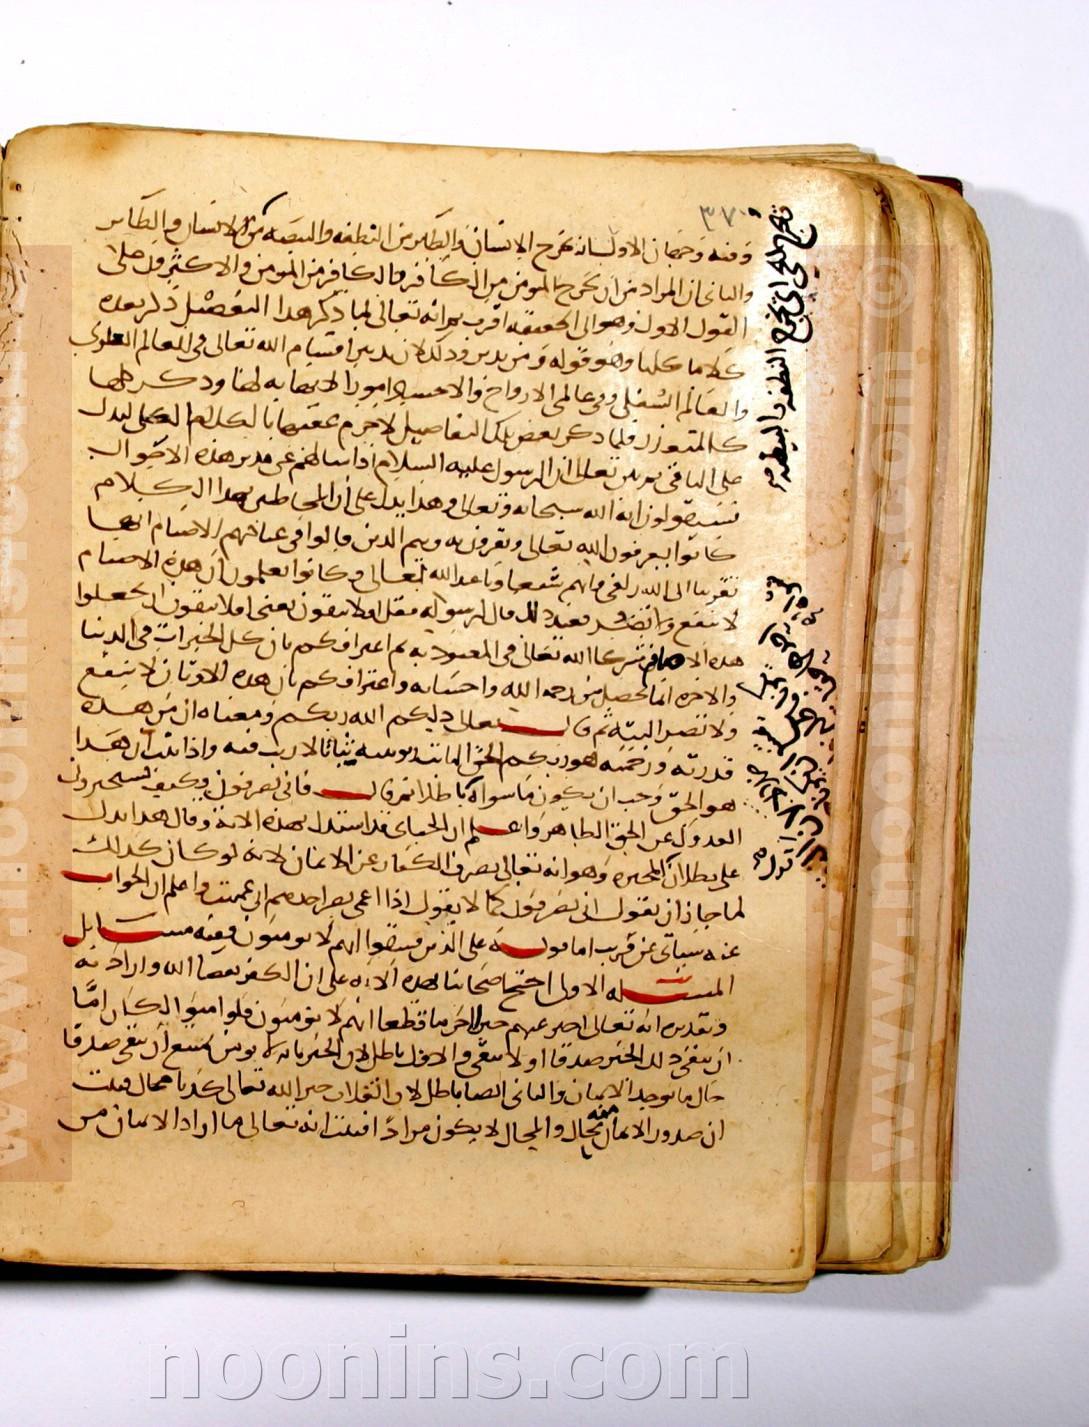 ٣٧٠
وفيه وجهان الاول انه يخرج الانسان والطير من النطفة والبيضة من الانسان والطاير
والثانى ان المراد منه ان يخرج المومن من الكافر والكافر من المومن والاكثرون على
القول الاول وهو الى الحقيقة اقرب ثم انه تعالى لما ذكر هذا التفصيل ذكر بعده
كلاما كليا وهو قوله ومن يدبر وذلك لان تدبير اقسام الله تعالى فى العالم العلوى
والعالم السفلى وفى عالمى الارواح والاجساد امور لا نهاية لها وذكر كلها
كالمتعذر فلما ذكر بعض تلك التفاصيل لا جرم عقبها بالكلام الكلى ليدل
على الباقى ثم بين تعالى ان الرسول عليه السلام اذا سالهم عن مدبر هذه الاحوال
فسيقولون انه الله سبحانه وتعالى وهذا يدل على ان المخاطبين بهذا الكلام
كانوا يعرفون الله تعالى ويقرون به وهم الذين قالوا فى عبادتهم الاصنام انها
تقربنا الى الله زلفى وانهم شفعاونا عند الله تعالى وكانوا يعلمون ان هذه الاصنام
لا تنفع ولا تضر فعند ذلك قال لرسوله فقل افلا تتقون يعنى افلا تتقون ان تجعلوا
هذه الاصنام شركا الله تعالى فى المعبودية مع اعترافكم بان كل الخيرات فى الدنيا
والاخرة انما تحصل من رحمة الله واحسانه واعترافكم بان هذه الاوثان لا تنفع
ولا تضر البتة ثم قال تعالى ذلكم الله ربكم ومعناه ان من هذه
قدرته ورحمته هو ربكم الحق الثابت ربوبيته ثباتا لا ريب فيه واذا ثبت ان هذا
هو الحق وجب ان يكون ما سواه باطلا ثم قال فانى تصرفون وكيف تستجيزون
العدول عن الحق الظاهر واعلم ان الجبائى قد استدل بهذه الاية وقال هذا يدل
على بطلان المجبرة وهو انه تعالى يصرف الكفار عن الايمان لانه لو كان كذلك
لما جاز ان يقول انى تصرفون كما لا يقول اذا اعمى بصر احدهم انى عميت واعلم ان الجواب
عنه سياتى عن قريب اما قوله على الذين فسقوا انهم لا يومنون ففيه مسائل
المسئلة الاولى احتج اصحابنا بهذه الاية على ان الكفر بقضا الله وارادته
وتقديره انه تعالى اخبر عنهم خبرا جزما قطعا انهم لا يومنون فلو امنوا لكان اما
ان يبقى ذلك الخبر صدقا او لا يبقى والاول باطل لان الخبر بانه لا يومن يمتنع ان يبقى صدقا
حال ما يوجد الايمان والثانى ايضا باطل لان انقلاب خبر الله تعالى كذبا محال فثبت
ان صدور الايمان منه محال والمحال لا يكون مرادا فثبت انه تعالى ما اراد الايمان من
noonins.com
www.noonins.com